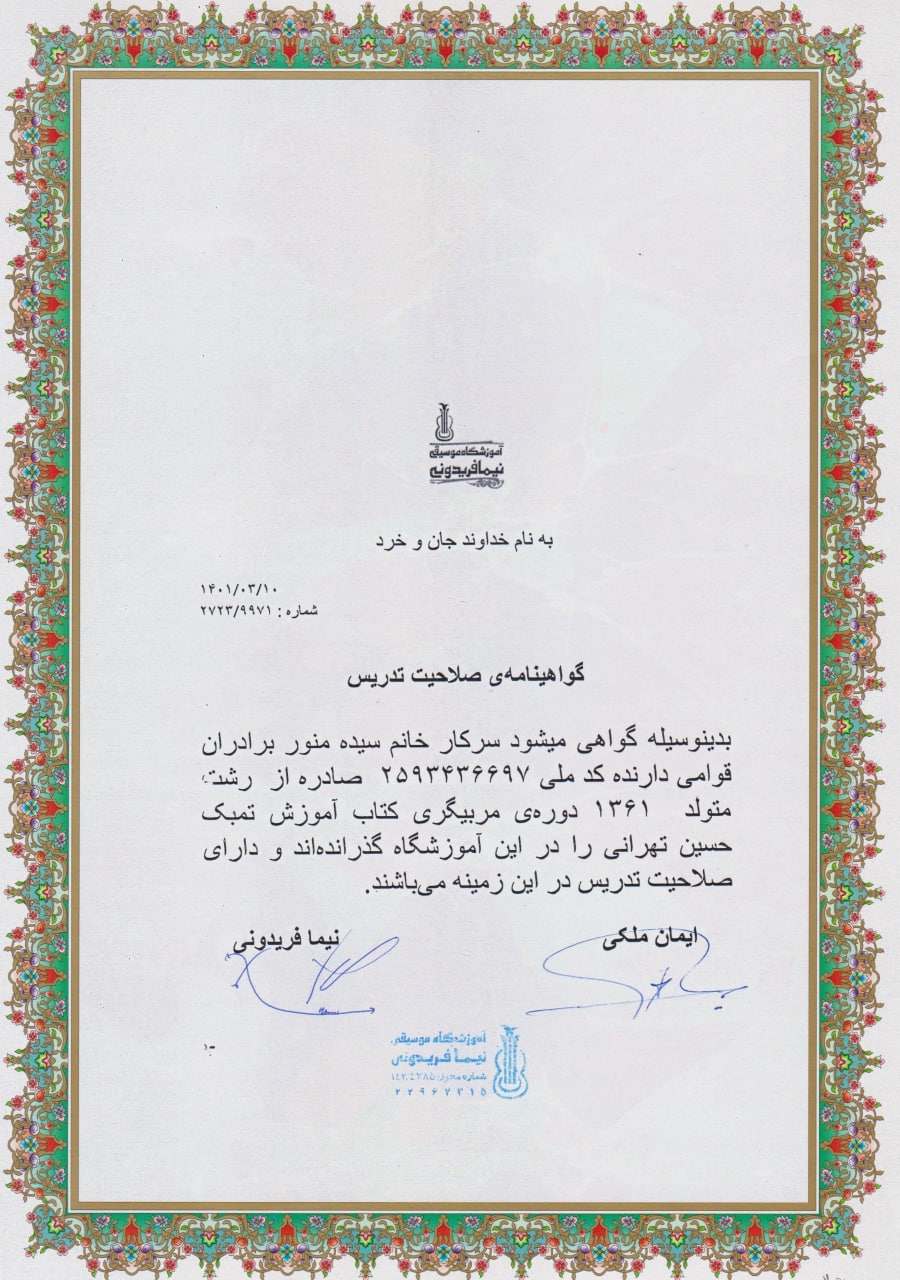 آموزشگاه موسیقی
نیما فریدونی
به نام خداوند جان و خرد
۱۴۰۱/۰۳/۱۰
شماره : ۲۷۲۳/۹۹۷۱
گواهینامه‌ی صلاحیت تدریس
بدینوسیله گواهی میشود سرکار خانم سیده منور برادران
قوامی دارنده کد ملی ۲۵۹۳۴۳۶۶۹۷ صادره از رشت
متولد ۱۳۶۱ دوره‌ی مربیگری کتاب آموزش تمبک
حسین تهرانی را در این آموزشگاه گذرانده‌اند و دارای
صلاحیت تدریس در این زمینه می‌باشند.
ایمان ملکی
نیما فریدونی
آموزشگاه موسیقی
نیما فریدونی
شماره مجوز:
۲۲۹۶۲۳۱۵